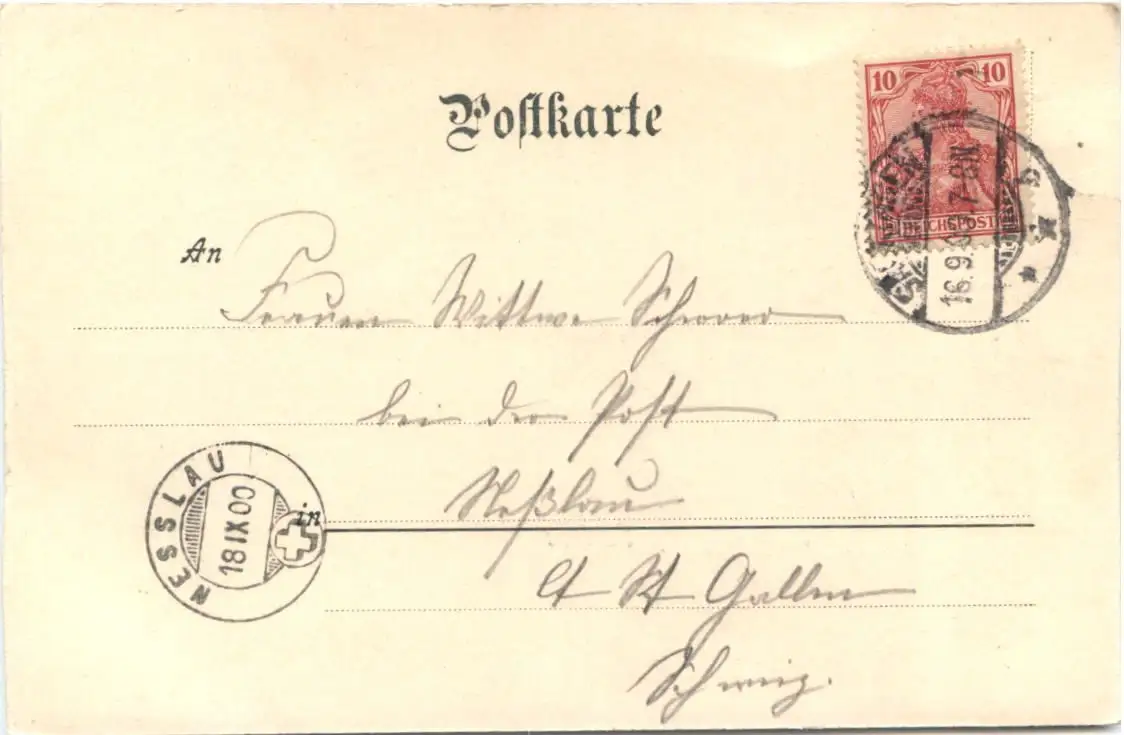 Postkarte
10 10
REICHSPOST
16.9. 7-8N
b
An
Frauen Wittwe Scherrer
bei der Post
in
Neßlau
Ct St Gallen
Schweiz.
NESSLAU
18 IX 00